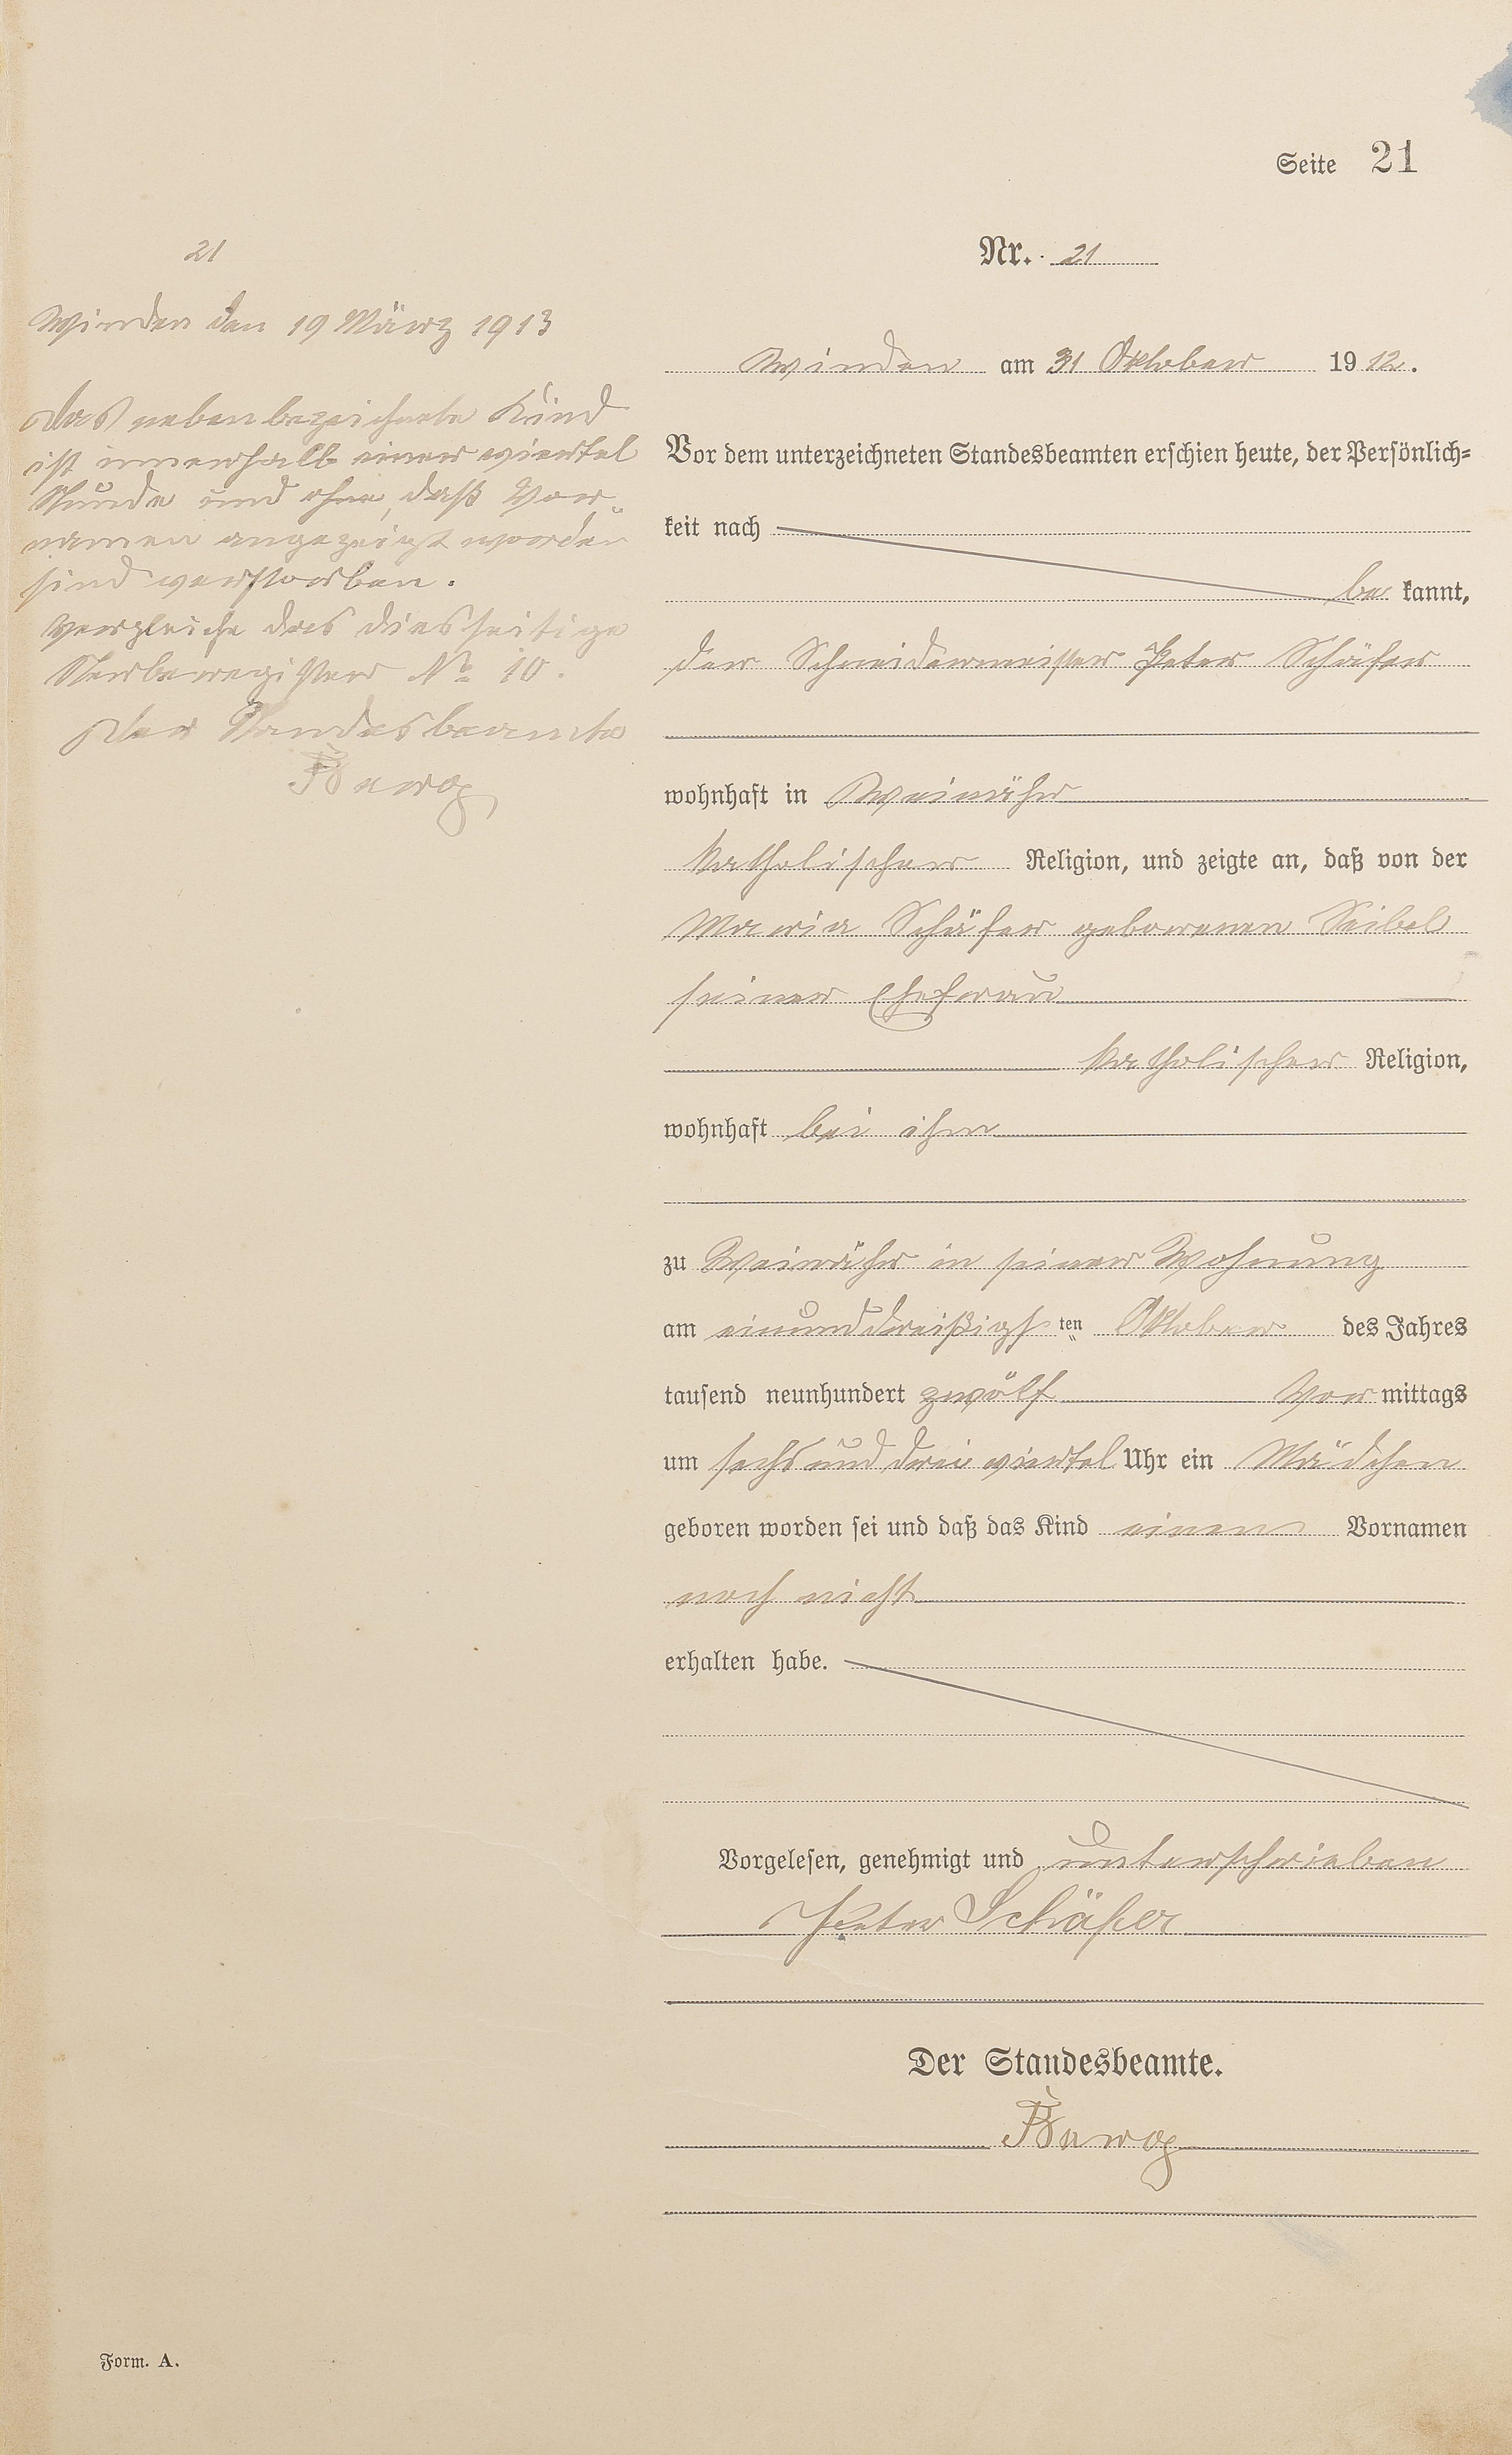 Seite 21
21
Winden den 19 März 1913
Das nebenbezeichnete Kind
ist innerhalb einer viertel
Stunde und ohne, daß Vor-
namen angezeigt worden
sind verstorben.
Vergleiche das diesseitige
Sterberegister No 10.
Der Standesbeamte
Nr. 21
Winden am 31 Oktober 1912.
Vor dem unterzeichneten Standesbeamten erschien heute, der Persönlich=
keit nach
be kannt,
der Schneidermeister Peter Schäfer
wohnhaft in Weinähr
katholischer Religion, und zeigte an, daß von der
Maria Schäfer geborenen Seibel
seiner Ehefrau
katholischer Religion,
wohnhaft bei ihm
zu Weinähr in seiner Wohnung
am einunddreißigsten Oktober des Jahres
tausend neunhundert zwölf Vor mittags
um sechs und drei viertel Uhr ein Mädchen
geboren worden sei und daß das Kind einen Vornamen
noch nicht
erhalten habe.
Vorgelesen, genehmigt und unterschrieben
Peter Schäfer
Der Standesbeamte.
Form. A.